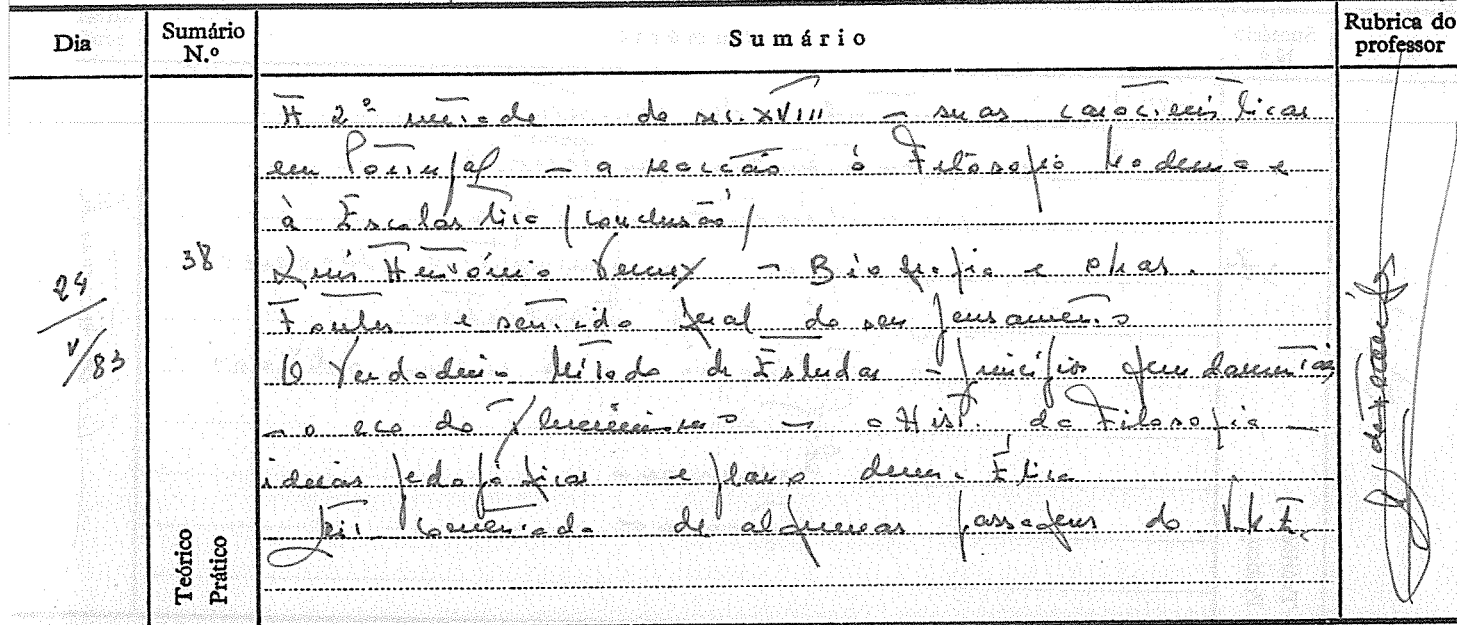 Dia
Sumário N.º
Sumário
Rubrica do professor
24/V/83
38
A 2ª metade do séc. XVIII – suas características
em Portugal – a reacção à Filosofia Moderna e
à Escolástica (conclusão)
Luís António Verney – Biografia e obras.
Fontes e sentido geral do seu pensamento
O Verdadeiro Método de Estudar – princípios fundamentais
– o eco do Iluminismo – a Hist. da Filosofia –
ideias pedagógicas e plano de uma Ética
Leit. comentada de algumas passagens do V.M.E.
Teórico
Prático